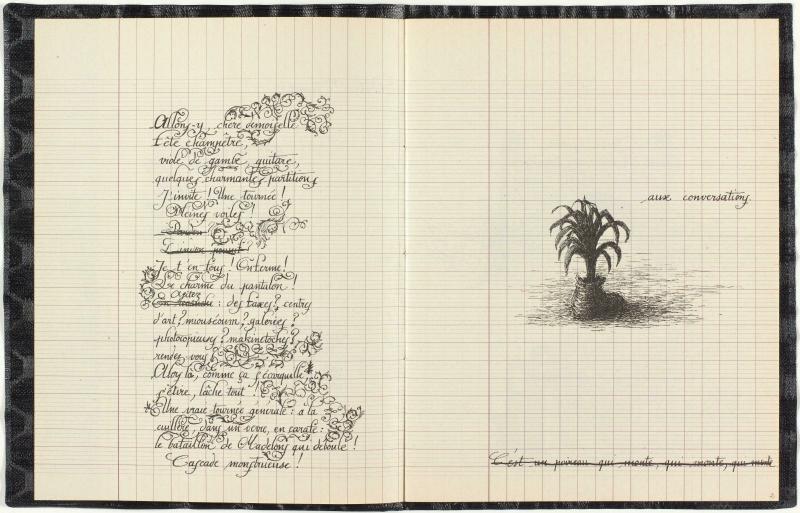 Allons-y, chère demoiselle
Fête champêtre,
viole de gambe, guitare,
quelques charmantes partitions
J'invite ! Une tournée !
Pleines voiles !
Je t'en fous ! Enferme !
Le charme du pantalon !
Optez
: des taxes ? centres
d'art ? miouséoum ? galeries ?
photocopieuses ? makinetoches ?
rendez-vous !
Alors là, comme ça s'écarquille
s'étire, lâche tout !
Une vraie tournée générale : à la
cuillère, dans un verre, en carafe :
le bataillon de Madelons qui déboule !
Cascade monstrueuse !
aux conversations.
C'est un poireau qui monte, qui monte, qui monte
2